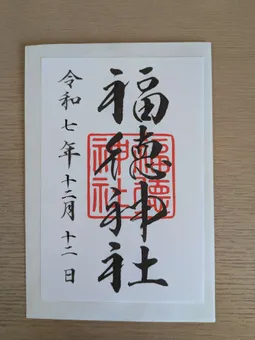 福徳神社
福徳神社
令和七年十二月十二日